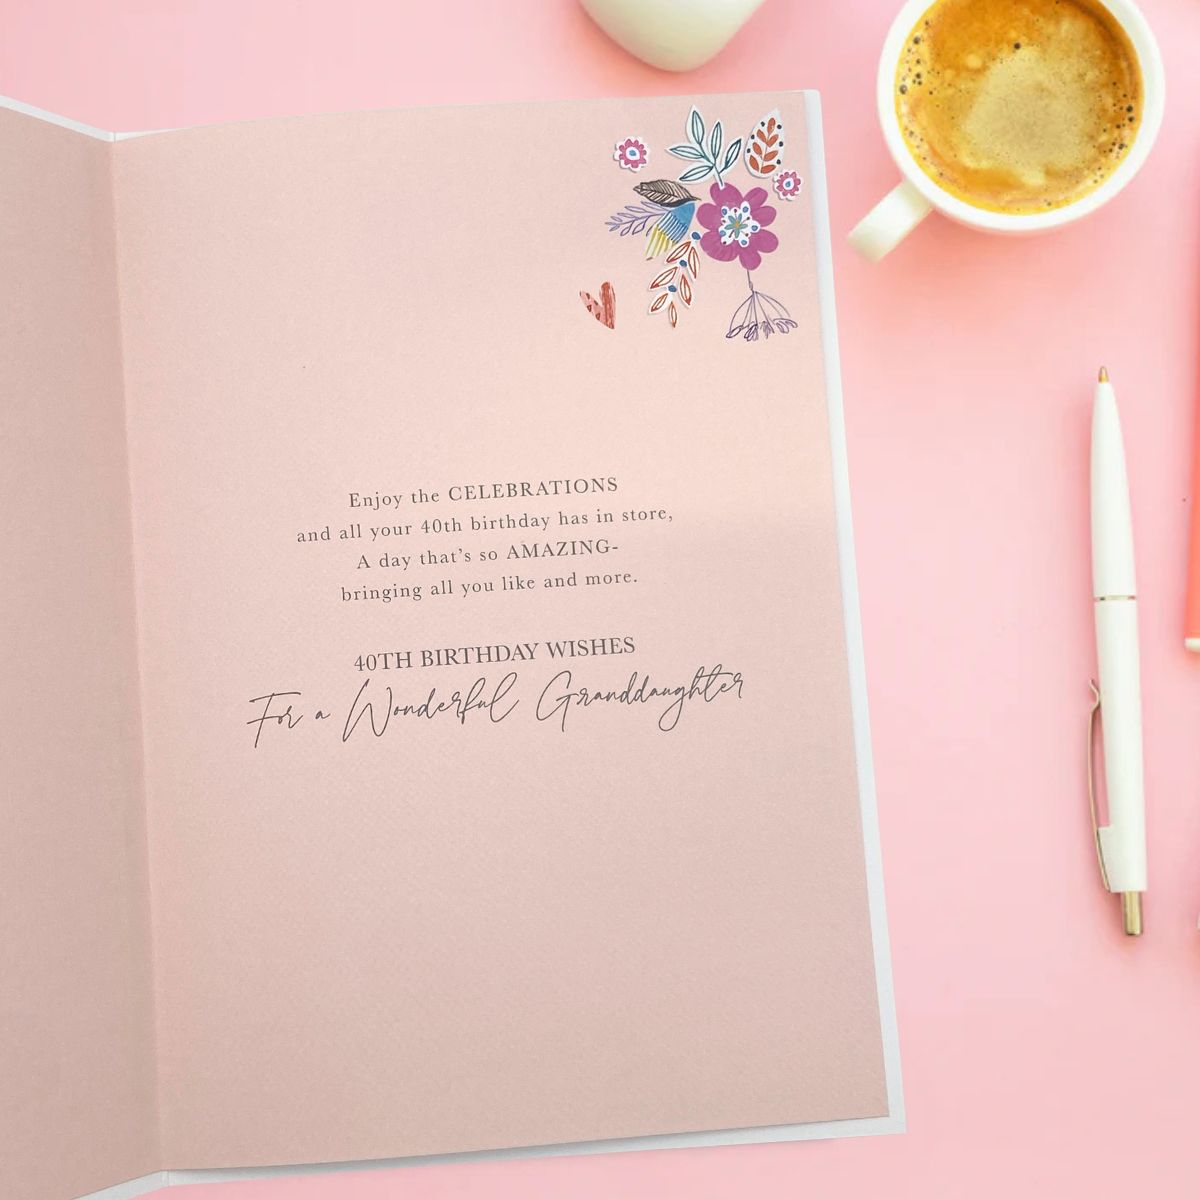 Enjoy the CELEBRATIONS
and all your 40th birthday has in store,
A day that's so AMAZING-
bringing all you like and more.
40TH BIRTHDAY WISHES
For a Wonderful Granddaughter